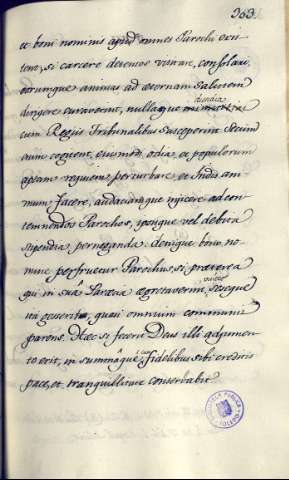 363.
et boni nominis apud omnes Parochi erit
tent, si carcere detentos visitare, consolari,
eorumque animas ad aeternam salutem
dirigere curaverint, nullasque inimicitias
cum Regiis Tribunalibus susceperint. Secum
enim cogitent, ejusmodi odia, et populorum
aptam requiem perturbare, et Indis ani-
mum facere, audaciamque injicere ad con-
temnendos Parochos, ipsisque vel debita
stipendia perneganda. Denique bono no-
mine perfruetur Parochus, si praeterea
qui in suâ Paraecia aegrotaverint, viserit, seseque
ita gesserit, quasi omnium communis
parens. Haec si fecerit Deus illi adjumen-
to erit, in summâque Fidelibus sibi creditis
pace, et tranquillitate conservabit.
TOLEDO